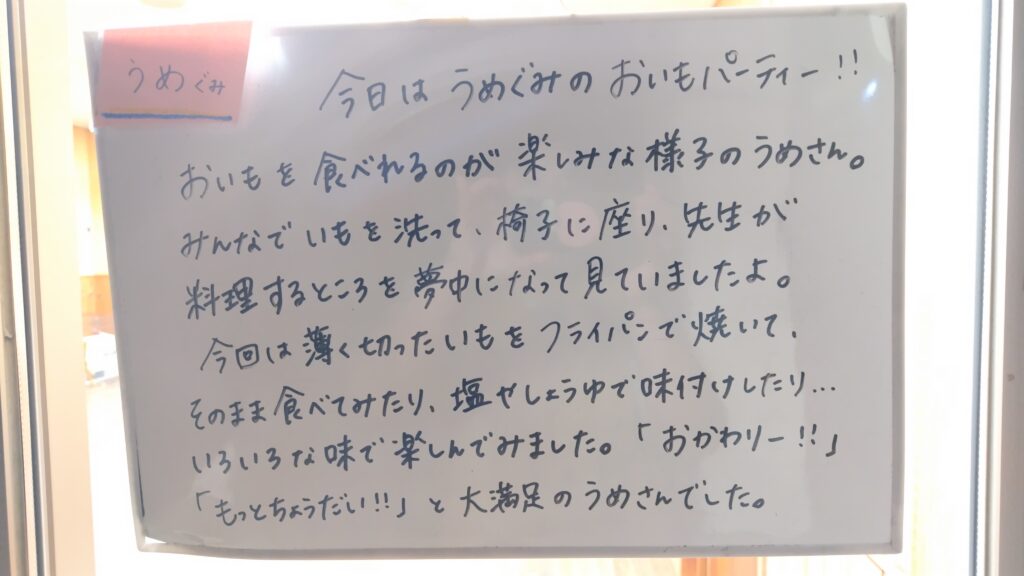 うめぐみ
今日はうめぐみのおいもパーティー!!
おいもを食べれるのが楽しみな様子のうめさん。
みんなでいもを洗って、椅子に座り、先生が
料理するところを夢中になって見ていましたよ。
今回は薄く切ったいもをフライパンで焼いて、
そのまま食べてみたり、塩やしょうゆで味付けしたり…
いろいろな味で楽しんでみました。「おかわりー!!」
「もっとちょうだい!!」と大満足のうめさんでした。